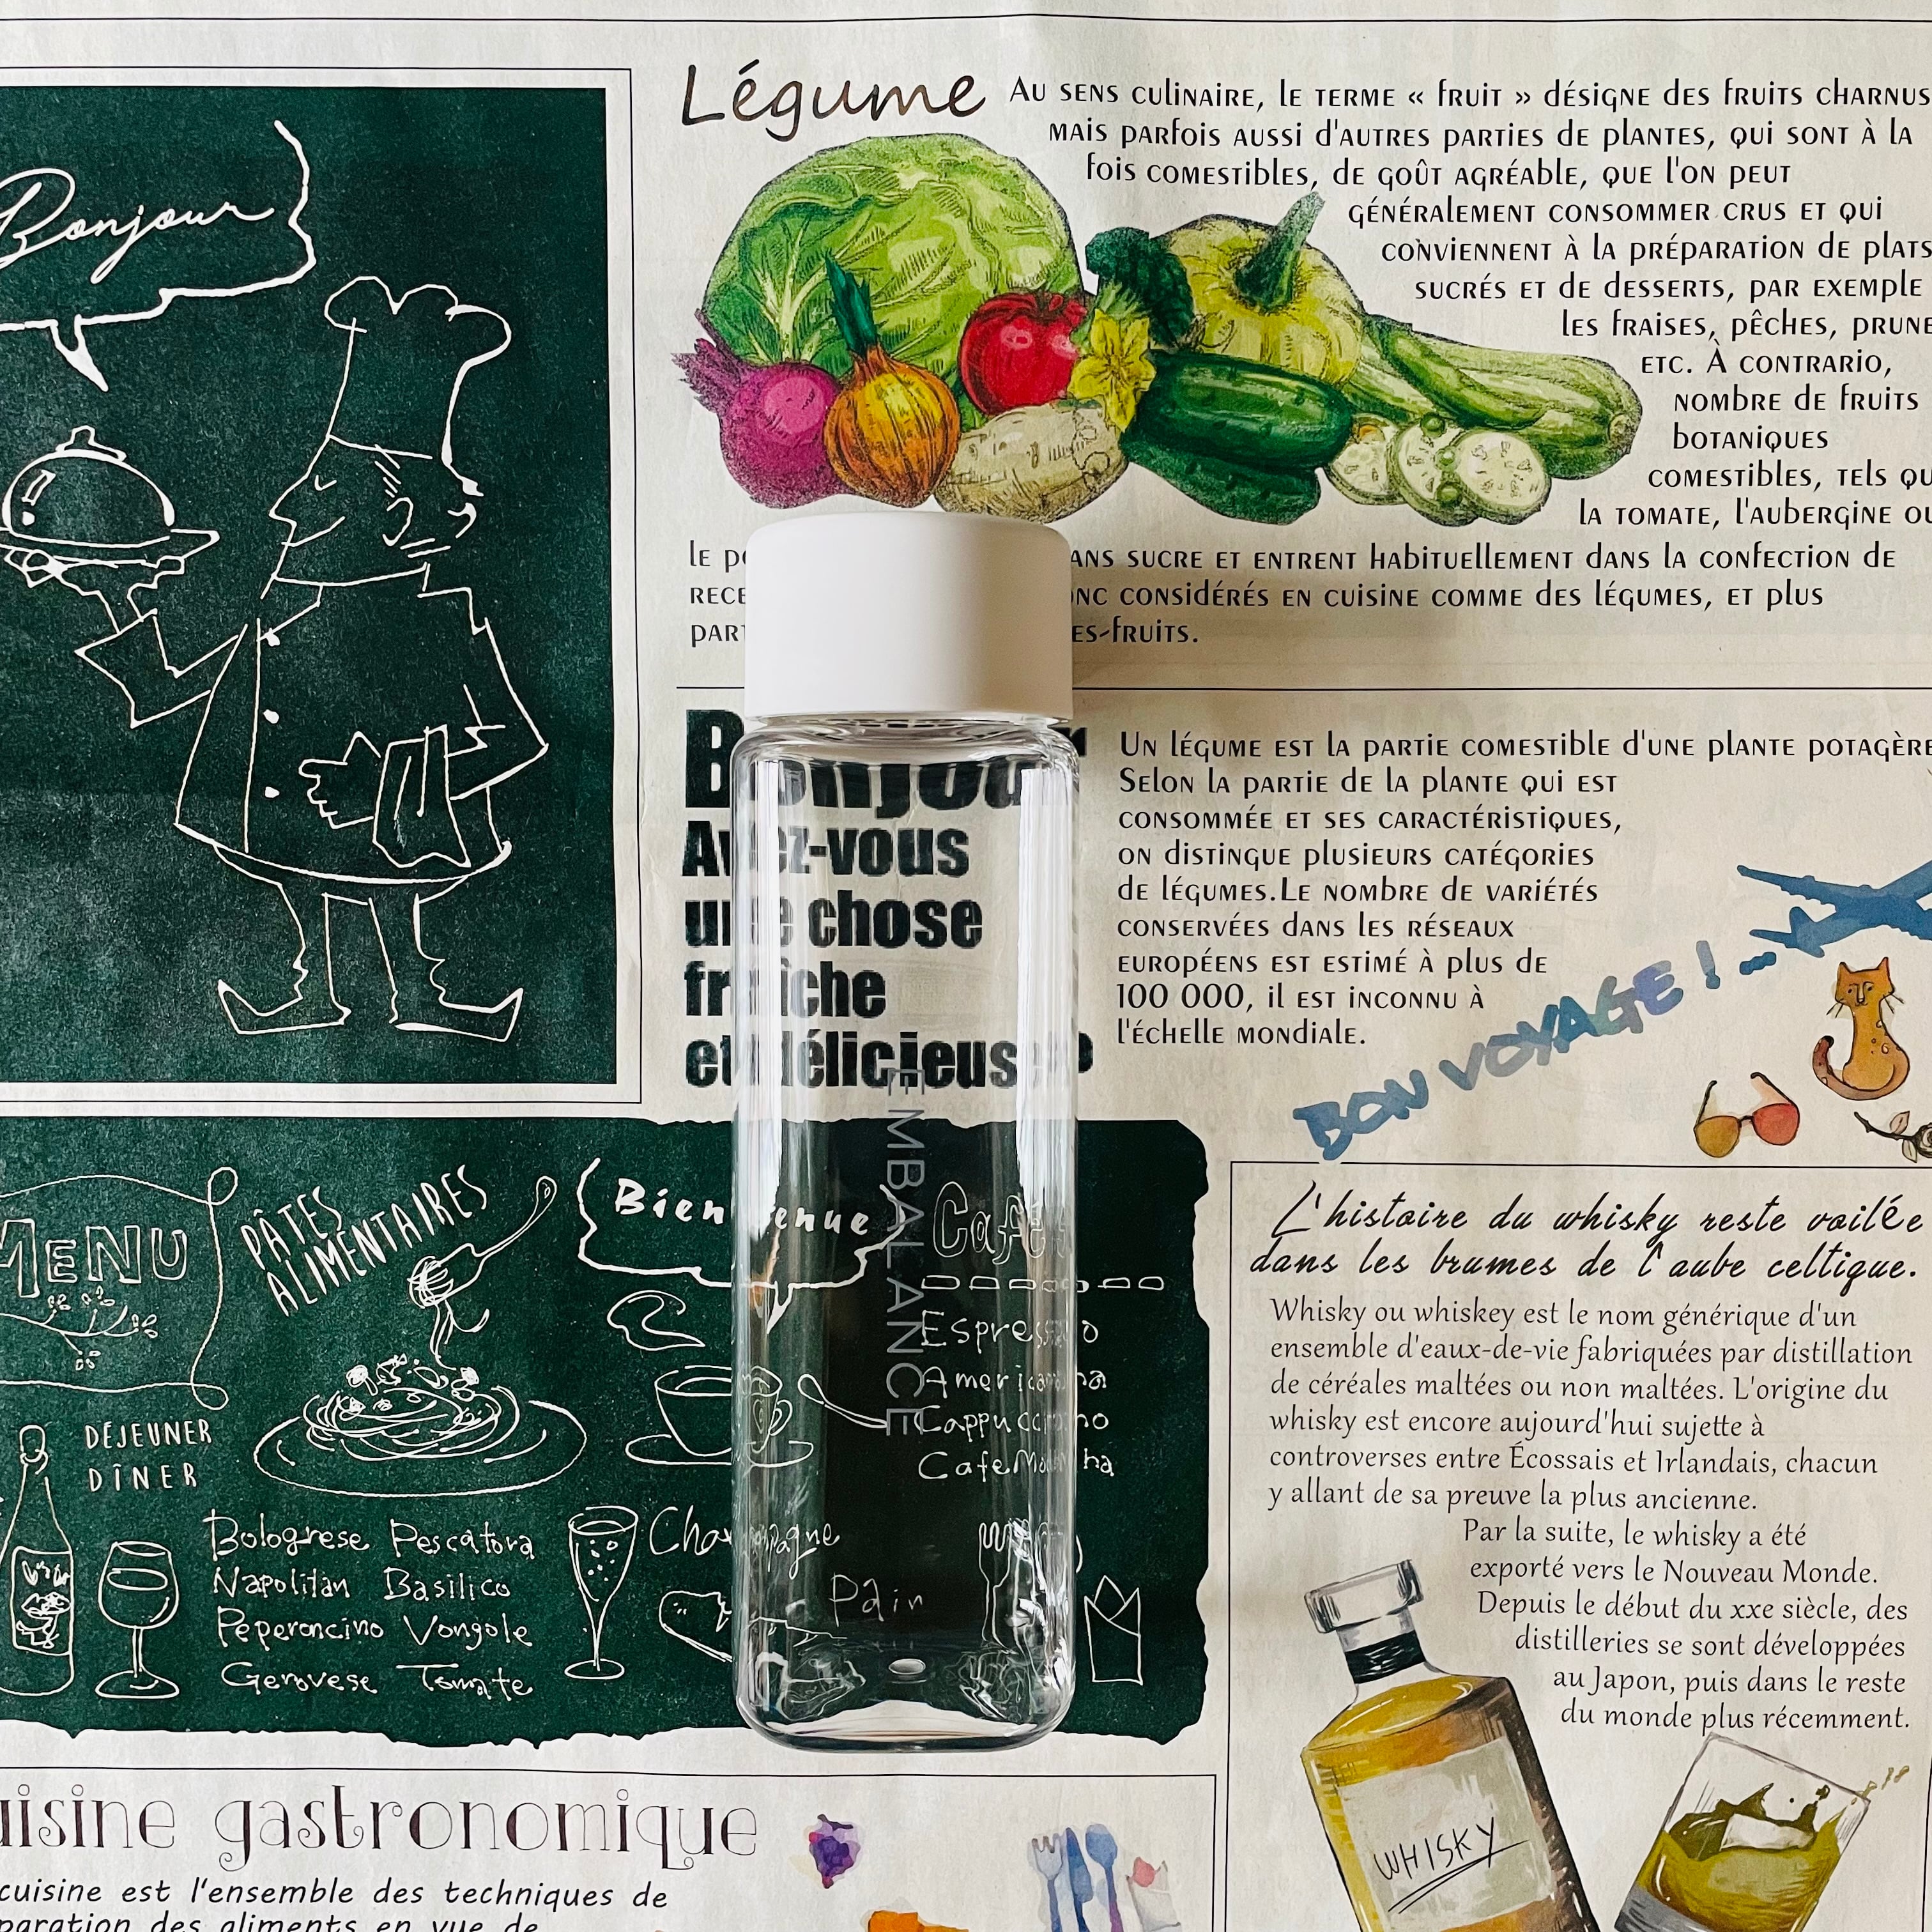 Bonjour
Légume
Au sens culinaire, le terme « fruit » désigne des fruits charnus
mais parfois aussi d'autres parties de plantes, qui sont à la
fois comestibles, de goût agréable, que l'on peut
généralement consommer crus et qui
conviennent à la préparation de plats
sucrés et de desserts, par exemple
les fraises, pêches, prune
etc. À contrario,
nombre de fruits
botaniques
comestibles, tels qu
la tomate, l'aubergine ou
le po ans sucre et entrent habituellement dans la confection de
rece onc considérés en cuisine comme des légumes, et plus
part es-fruits.
Bonjour
Avez-vous
une chose
fraîche
et délicieuse
Un légume est la partie comestible d'une plante potagère
Selon la partie de la plante qui est
consommée et ses caractéristiques,
on distingue plusieurs catégories
de légumes.Le nombre de variétés
conservées dans les réseaux
européens est estimé à plus de
100 000, il est inconnu à
l'échelle mondiale.
BON VOYAGE !
EMBALANCE
MENU
PÂTES
ALIMENTAIRES
Bienvenue
Café
Espresso
Americana
Cappuccino
CafeMocha
DÉJEUNER
DÎNER
Bolognese Pescatora
Napolitan Basilico
Peperoncino Vongole
Genovese Tomate
Champagne
Pain
L'histoire du whisky reste voilée
dans les brumes de l'aube celtique.
Whisky ou whiskey est le nom générique d'un
ensemble d'eaux-de-vie fabriquées par distillation
de céréales maltées ou non maltées. L'origine du
whisky est encore aujourd'hui sujette à
controverses entre Écossais et Irlandais, chacun
y allant de sa preuve la plus ancienne.
Par la suite, le whisky a été
exporté vers le Nouveau Monde.
Depuis le début du xxe siècle, des
distilleries se sont développées
au Japon, puis dans le reste
du monde plus récemment.
WHISKY
uisine gastronomique
cuisine est l'ensemble des techniques de
paration des aliments en vue de